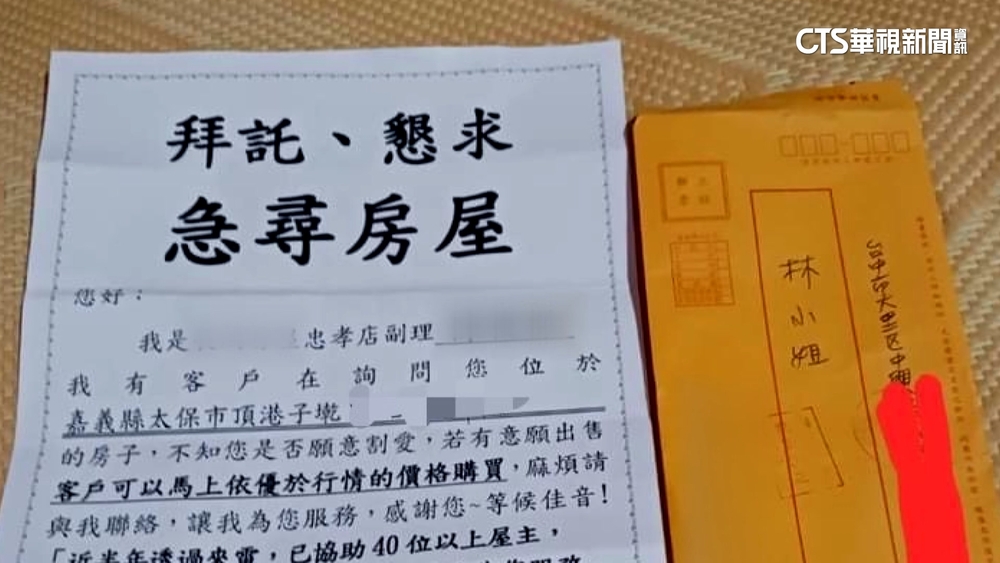 CTS華視新聞資訊
拜託、懇求
急尋房屋
您好：
我是 忠孝店副理
我有客戶在詢問您位於
嘉義縣太保市頂港子墘
的房子，不知您是否願意割愛，若有意願出售
客戶可以馬上依優於行情的價格購買，麻煩請
與我聯絡，讓我為您服務，感謝您~等候佳音！
「近半年透過來電，已協助40位以上屋主，
林小姐
台中市大里区中興